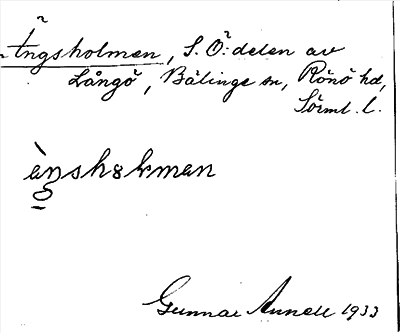 Ängsholmen, S.Ö:delen av
Långö, Bälinge sn, Rönö hd,
Sörml. l.
Gunnar Annell 1933